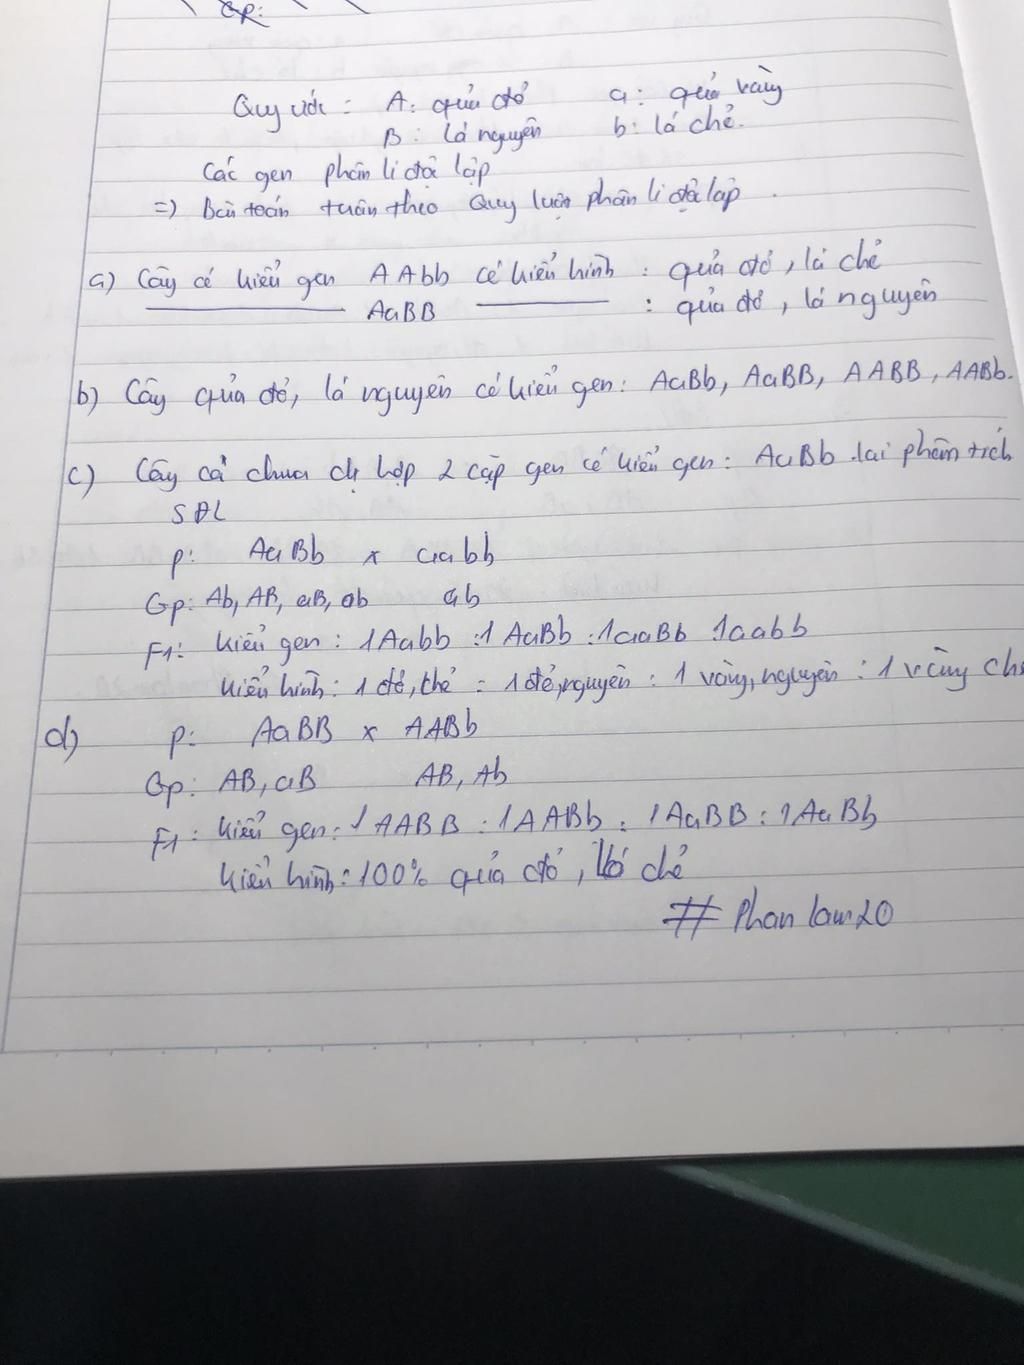 GP:
Quy ước : A: quả đỏ a: quả vàng
B: lá nguyên b: lá chẻ.
Các gen phân li độc lập
=) Bài toán tuân theo Quy luật phân li độc lập.
a) Cây có kiểu gen AAbb có kiểu hình : quả đỏ, lá chẻ
AaBB : quả đỏ, lá nguyên
b) Cây quả đỏ, lá nguyên có kiểu gen: AaBb, AaBB, AABB, AABb.
c) Cây cà chua dị hợp 2 cặp gen có kiểu gen: AaBb lai phân tích
SĐL
P: AaBb x aabb
Gp: Ab, AB, aB, ab ab
F1: kiểu gen: 1Aabb :1 AaBb :1aaBb 1aabb
kiểu hình: 1 đỏ, chẻ : 1 đỏ, nguyên : 1 vàng, nguyên : 1 vàng ch
d) P: AaBB x AABb
Gp: AB, aB AB, Ab
F1: kiểu gen: 1 AABB : 1AABb : 1AaBB : 1AaBb
kiểu hình: 100% quả đỏ, lá chẻ
# Phan lam20